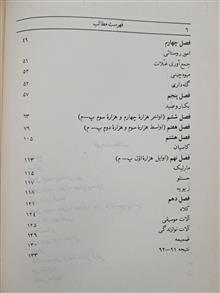 ۶ فهرست مطالب
فصل چهارم ۴۹
امور روستائی
جمع‌آوری غلات ۵۱
میوه‌چینی ۵۲
گله‌داری ۵۲
فصل پنجم ۵۷
یکبار وصید
فصل ششم (اواخر هزارهٔ چهارم و هزارهٔ سوم پ-م) ۶۳
فصل هفتم (اواسط هزارهٔ سوم و هزارهٔ دوم پ-م) ۷۶
فصل هشتم ۱۰۵
کاسیان
فصل نهم (اوایل هزارهٔ اول پ-م) ۱۱۳
مارلیک ۱۱۵
حسنلو ۱۱۷
زیویه ۱۱۸
فصل دهم ۱۲۱
کلاه ۱۲۴
آلات موسیقی ۱۲۵
آلات نوازندگی ۱۲۶
ضمیمه ۱۳۰
نتیجه ۹۱-۹۲ ۱۳۳